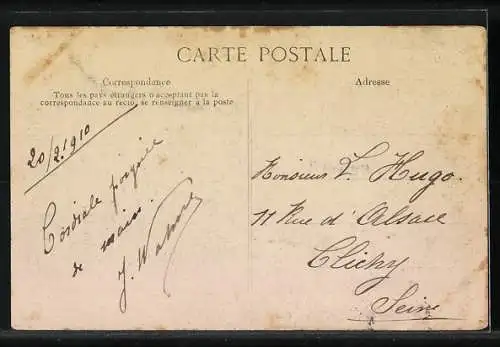 CARTE POSTALE
Correspondance
Tous les pays étrangers n'acceptant pas la
correspondance au recto, se renseigner à la poste
20/2.1910
Cordiale poignée
de main.
J.
Adresse
Monsieur L. Hugo.
11 Rue d'Alsace
Clichy
Seine